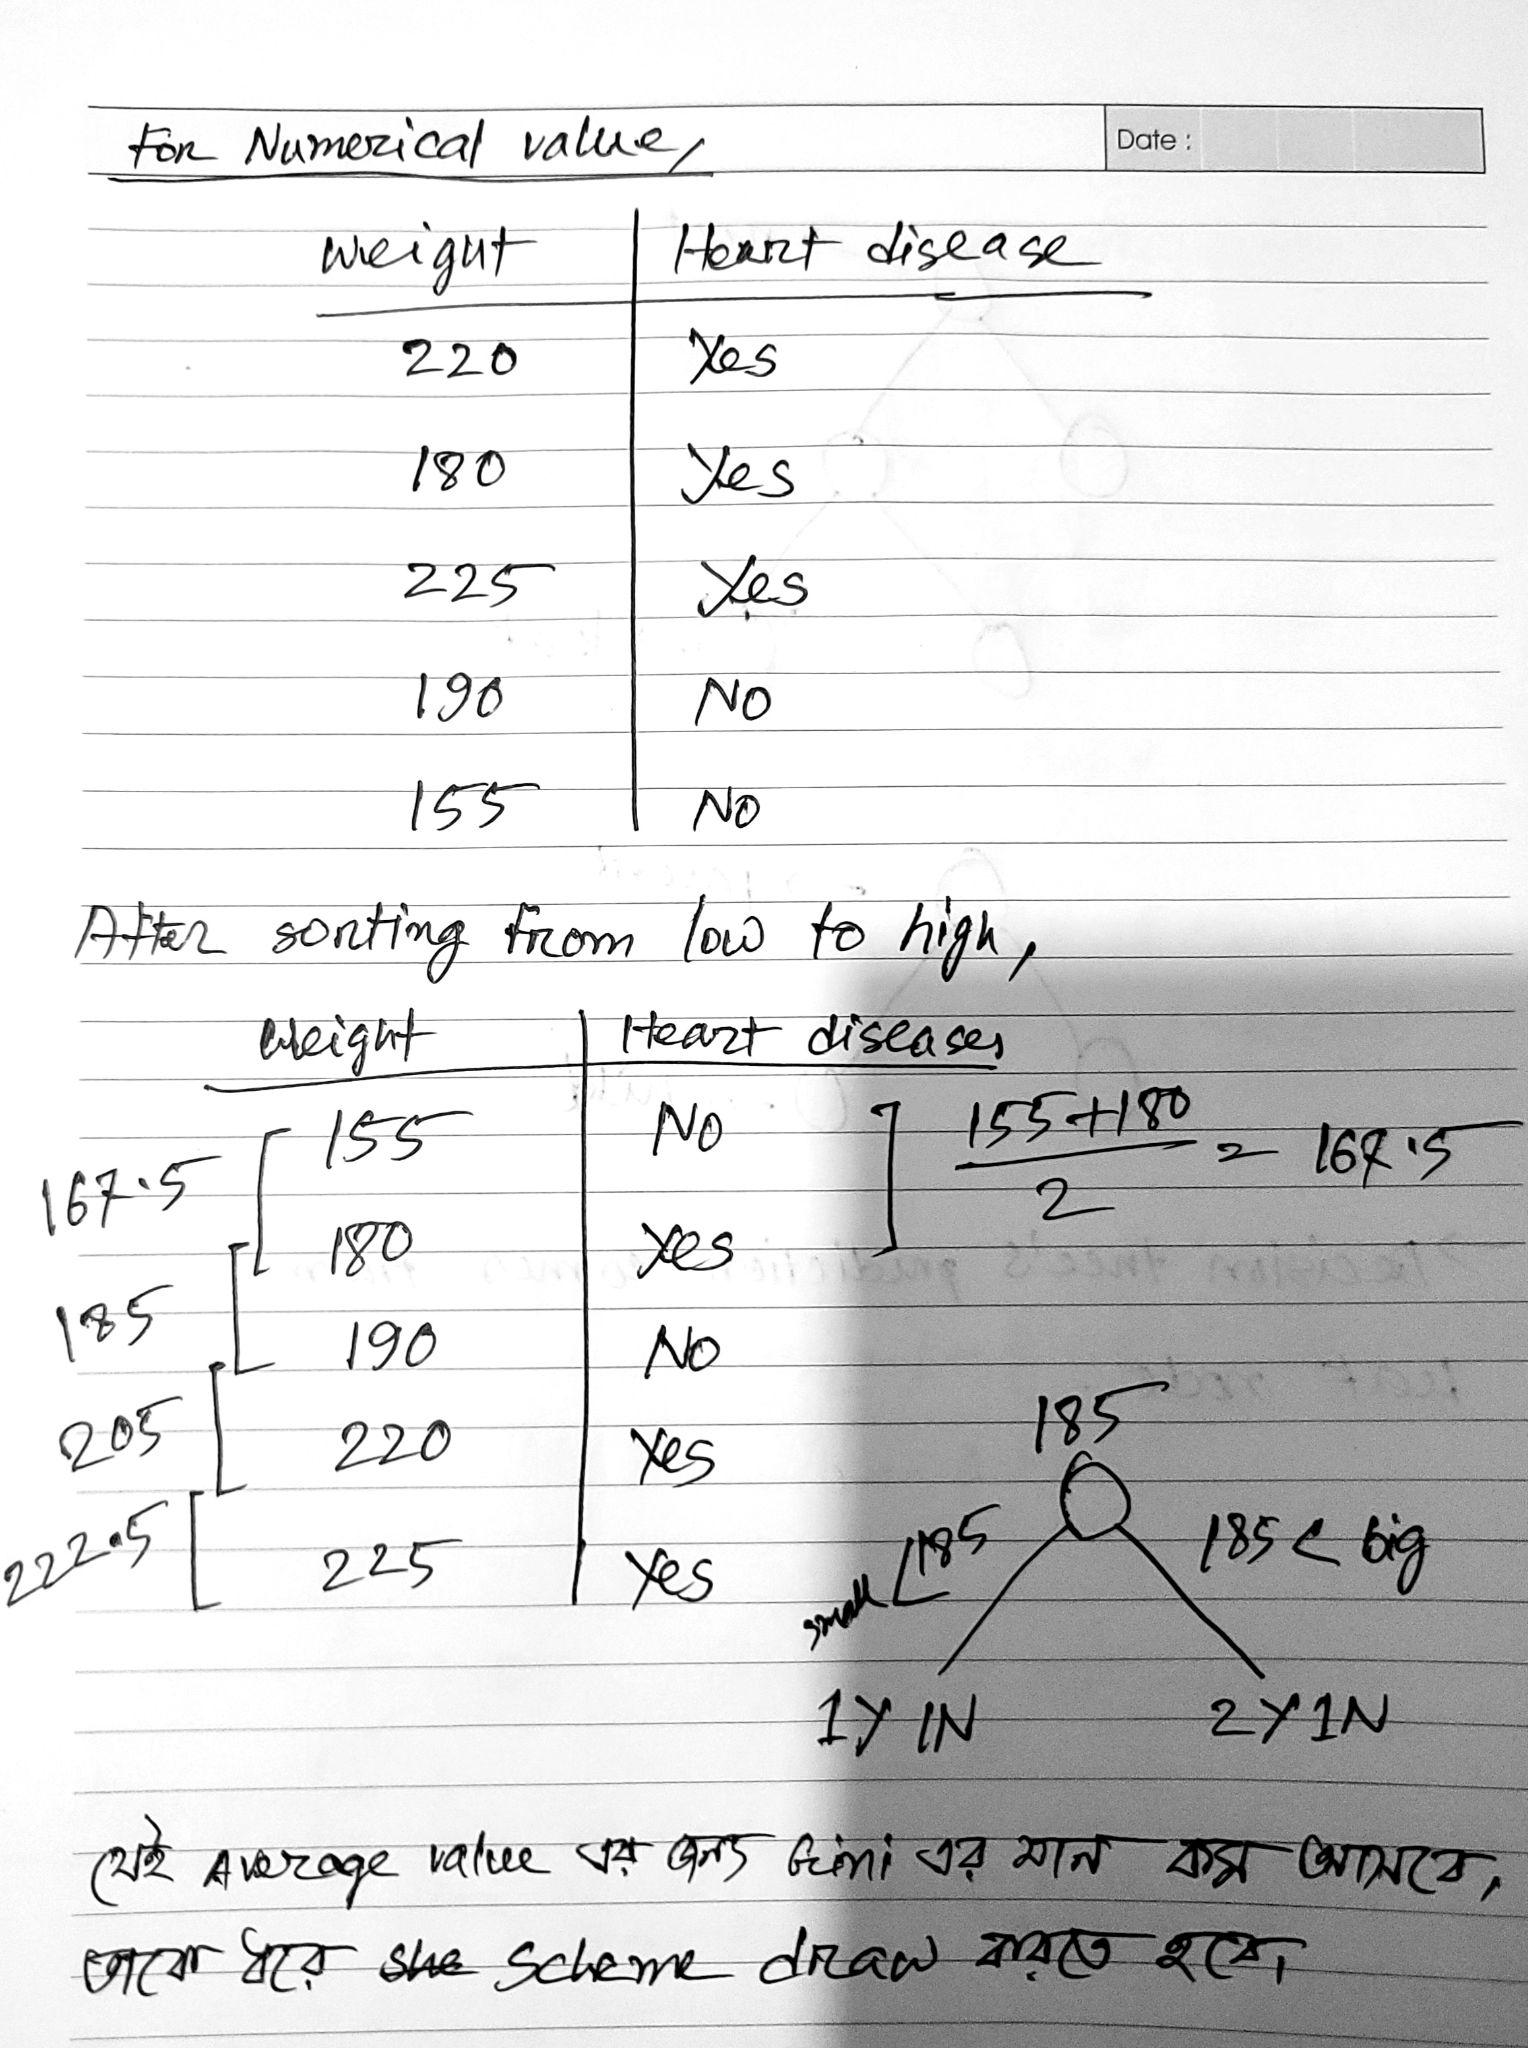 For Numerical value,
Date :
weight Heart disease
220 Yes
180 Yes
225 Yes
190 No
155 No
After sorting from low to high,
weight Heart diseases
155 No
167.5
155+180
2
= 167.5
180 Yes
185
190 No
205
220 Yes
222.5
225 Yes
185
small ∠185
185 < big
1Y 1N
2Y 1N
যেই Average value এর জন্য Gini এর মান কম আসবে,
তাকে ধরে scheme draw করতে হবে,